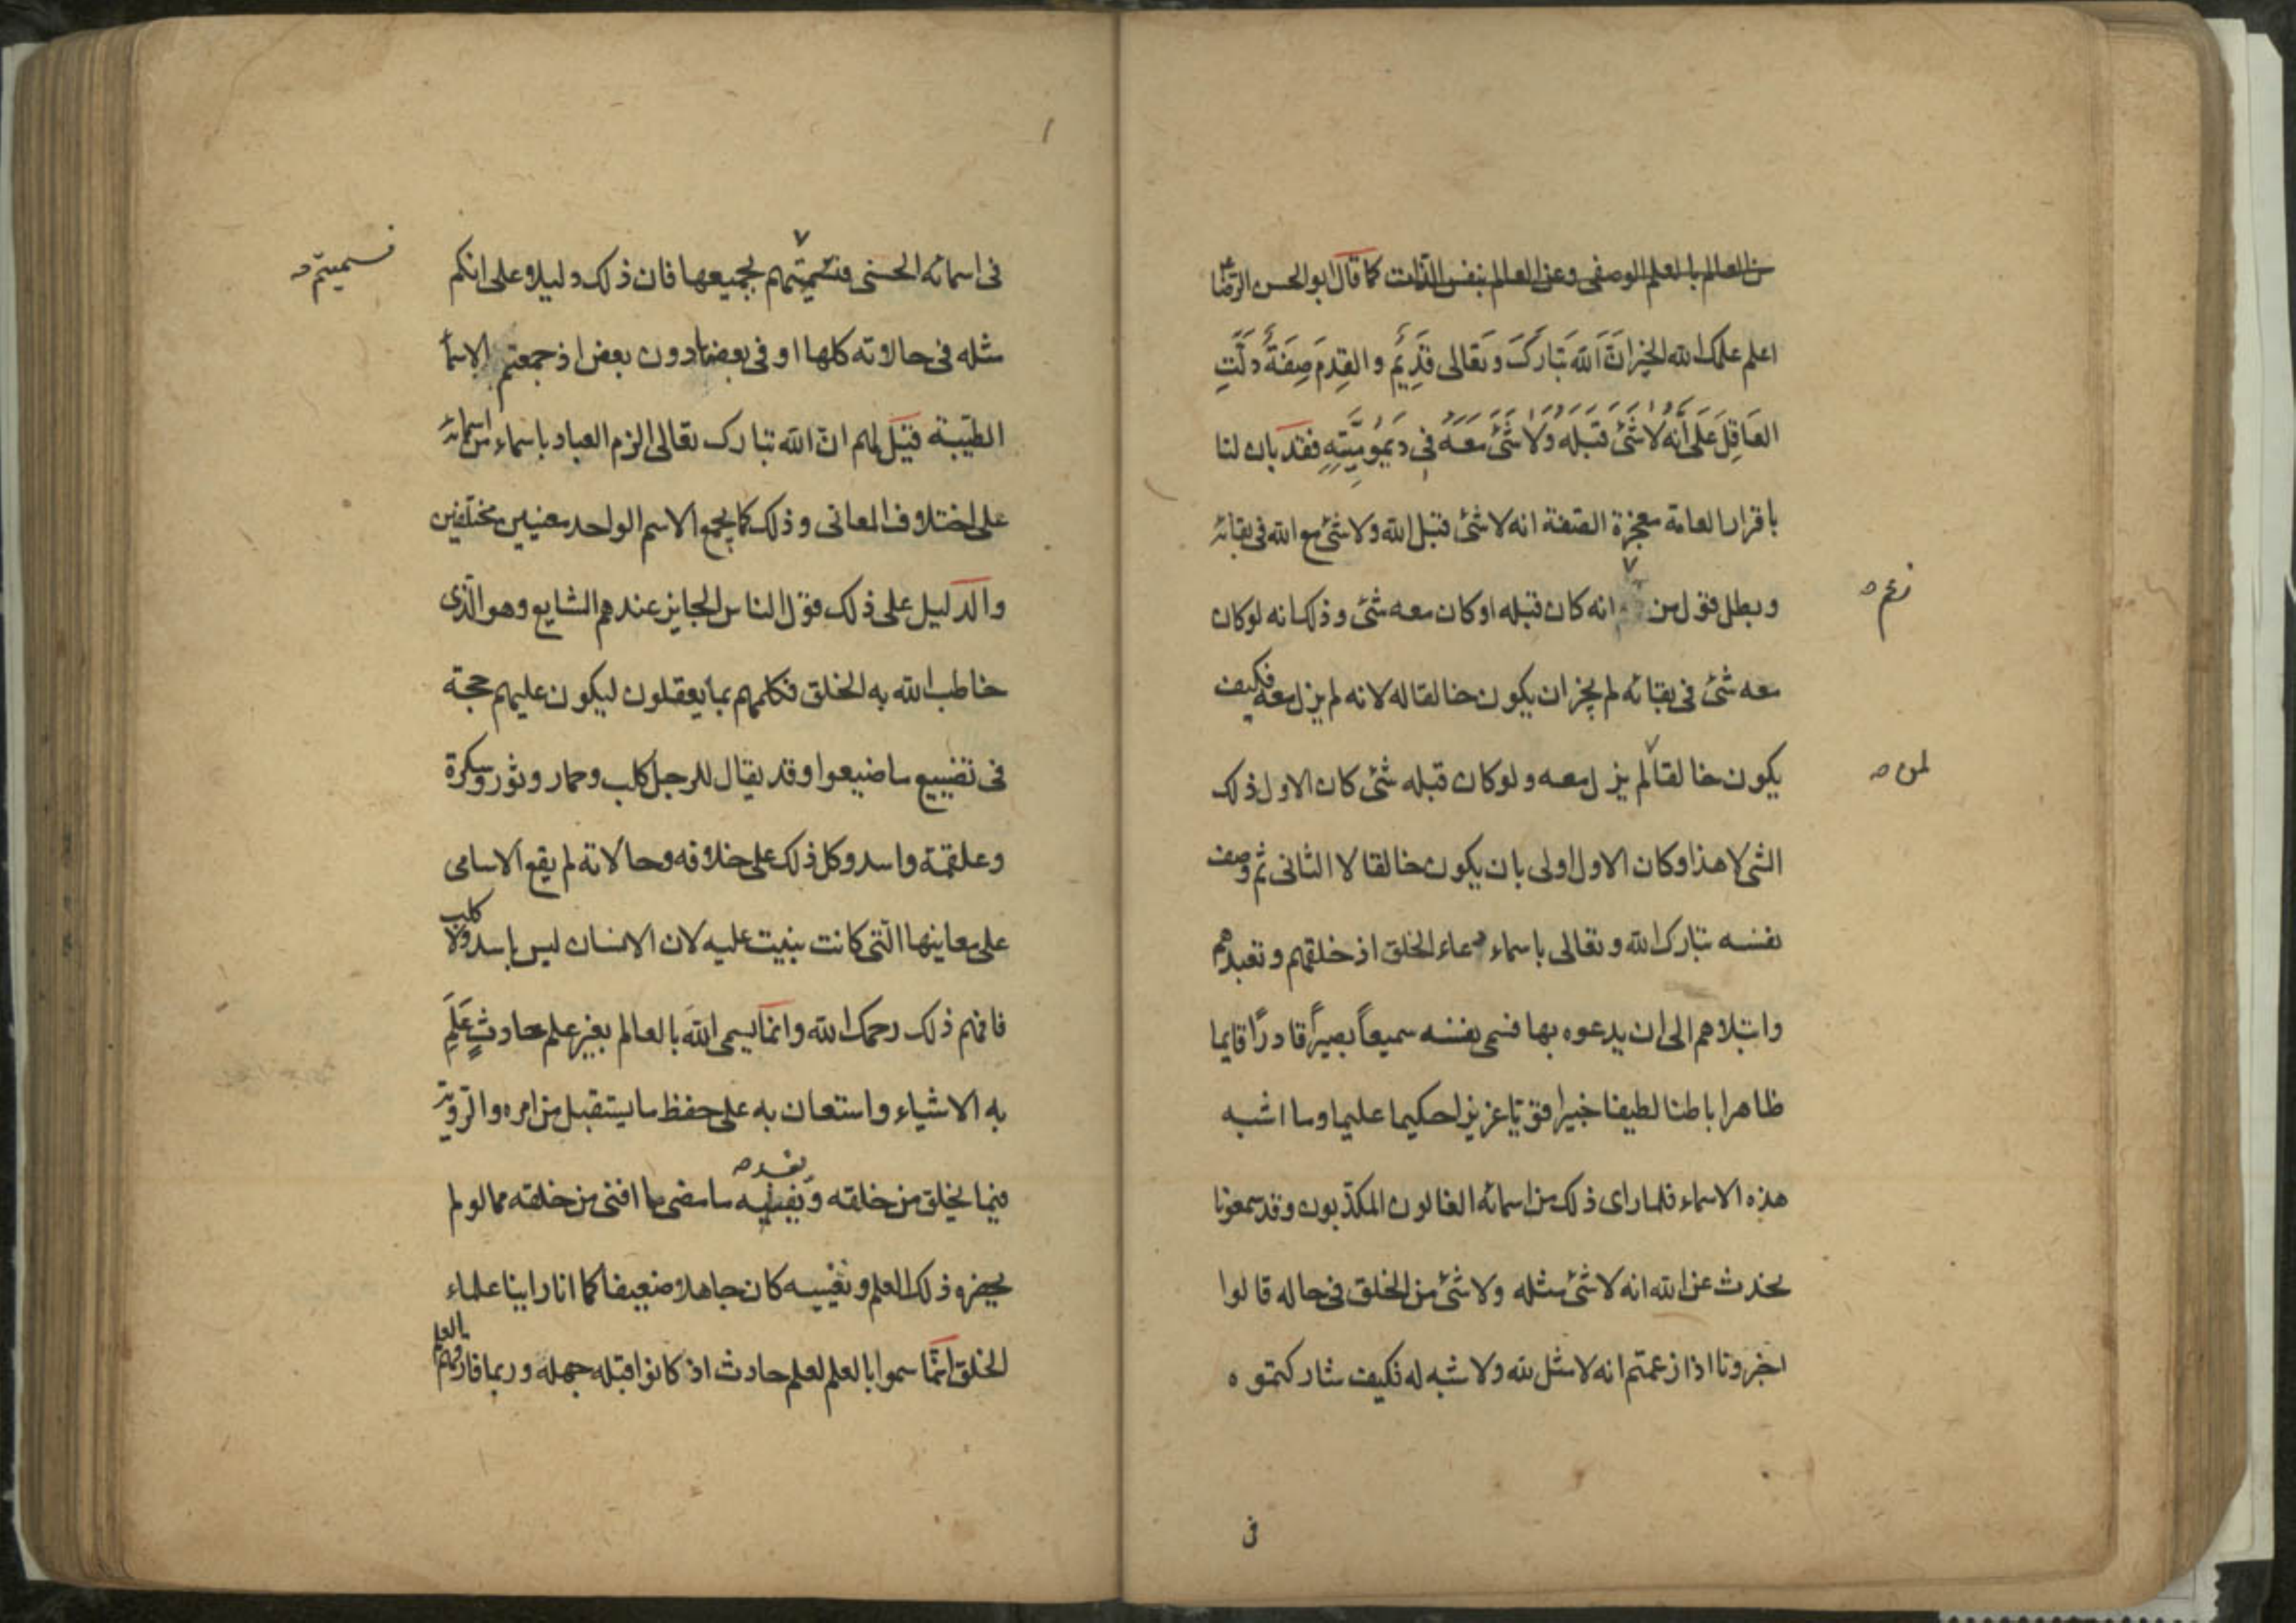 من العالم بالعلم الوصفى وعن العالم بنفس الذات كما قال ابو الحسن الرضا ع
اعلم علمك الله الخير ان الله تبارك وتعالى قديم والقدم صفة دلت
العاقل على انه لا شئ قبله ولا شئ معه فى ديموميته فقد بان لنا
باقرار العامة معجزة الصفة انه لا شئ قبل الله ولا شئ مع الله فى بقائه
وبطل قول من انه كان قبله او كان معه شئ وذلك انه لو كان
زعم صح
معه شئ فى بقائه لم يجز ان يكون خالقا له لانه لم يزل معه فكيف
يكون خالقا لم يزل معه ولو كان قبله شئ كان الاول ذلك
لمن صح
الشئ لا هذا وكان الاول اولى بان يكون خالقا لا الثانى ثم وصف
نفسه تبارك الله وتعالى باسماء دعاء الخلق اذ خلقهم وتعبدهم
وابتلاهم الى ان يدعوه بها فسمى نفسه سميعاً بصيراً قادرًا قايما
ظاهرا باطنا لطيفا خبيرا قويّا عزيزا حكيما عليما وما اشبه
هذه الاسماء فلما راى ذلك من اسمائه الغالون المكذبون وقد سمعونا
نحدث عن الله انه لا شئ مثله ولا شئ من الخلق فى حاله قالوا
اخبرونا اذا زعمتم انه لا مثل لله ولا شبه له فكيف شاركتموه
فى
فى اسمائه الحسنى فتسميتهم بجميعها فان ذلك دليلا على انكم
فسميتم صح
مثله فى حالاته كلها او فى بعضها دون بعض اذ جمعتم الاسماء
الطيّبة قيل لهم ان الله تبارك تعالى الزم العباد باسماء من اسمائه
على اختلاف المعانى وذلك كما يجمع الاسم الواحد معنيين مختلفين
والدليل على ذلك قول الناس الجايز عندهم الشايع وهو الّذى
خاطب الله به الخلق فكلمهم بما يعقلون ليكون عليهم حجة
فى تضييع ما ضيعوا وقد يقال للرجل كلب وحمار وثور وسكرة
وعلقمة واسد وكل ذلك على خلافه وحالاته لم يقع الاسامى
على معاينها الّتى كانت بنيت عليه لان الانسان ليس باسد ولا كلب
فافهم ذلك رحمك الله وانما يسمى الله بالعالم بغير علم حادثٍ عَلِمَ
به الاشياء واستعان به على حفظ ما يستقبل من امره والرّوية
فيما يخلق من خلقه ويفنيه ما مضى مما افنى من خلقه مما لو لم
يحضره ذلك العلم وتغييبه كان جاهلا ضعيفا كما انا راينا علماء
الخلق انّما سموا بالعلم لعلم حادث اذ كانوا قبله جهله وربما فارقهم العلم